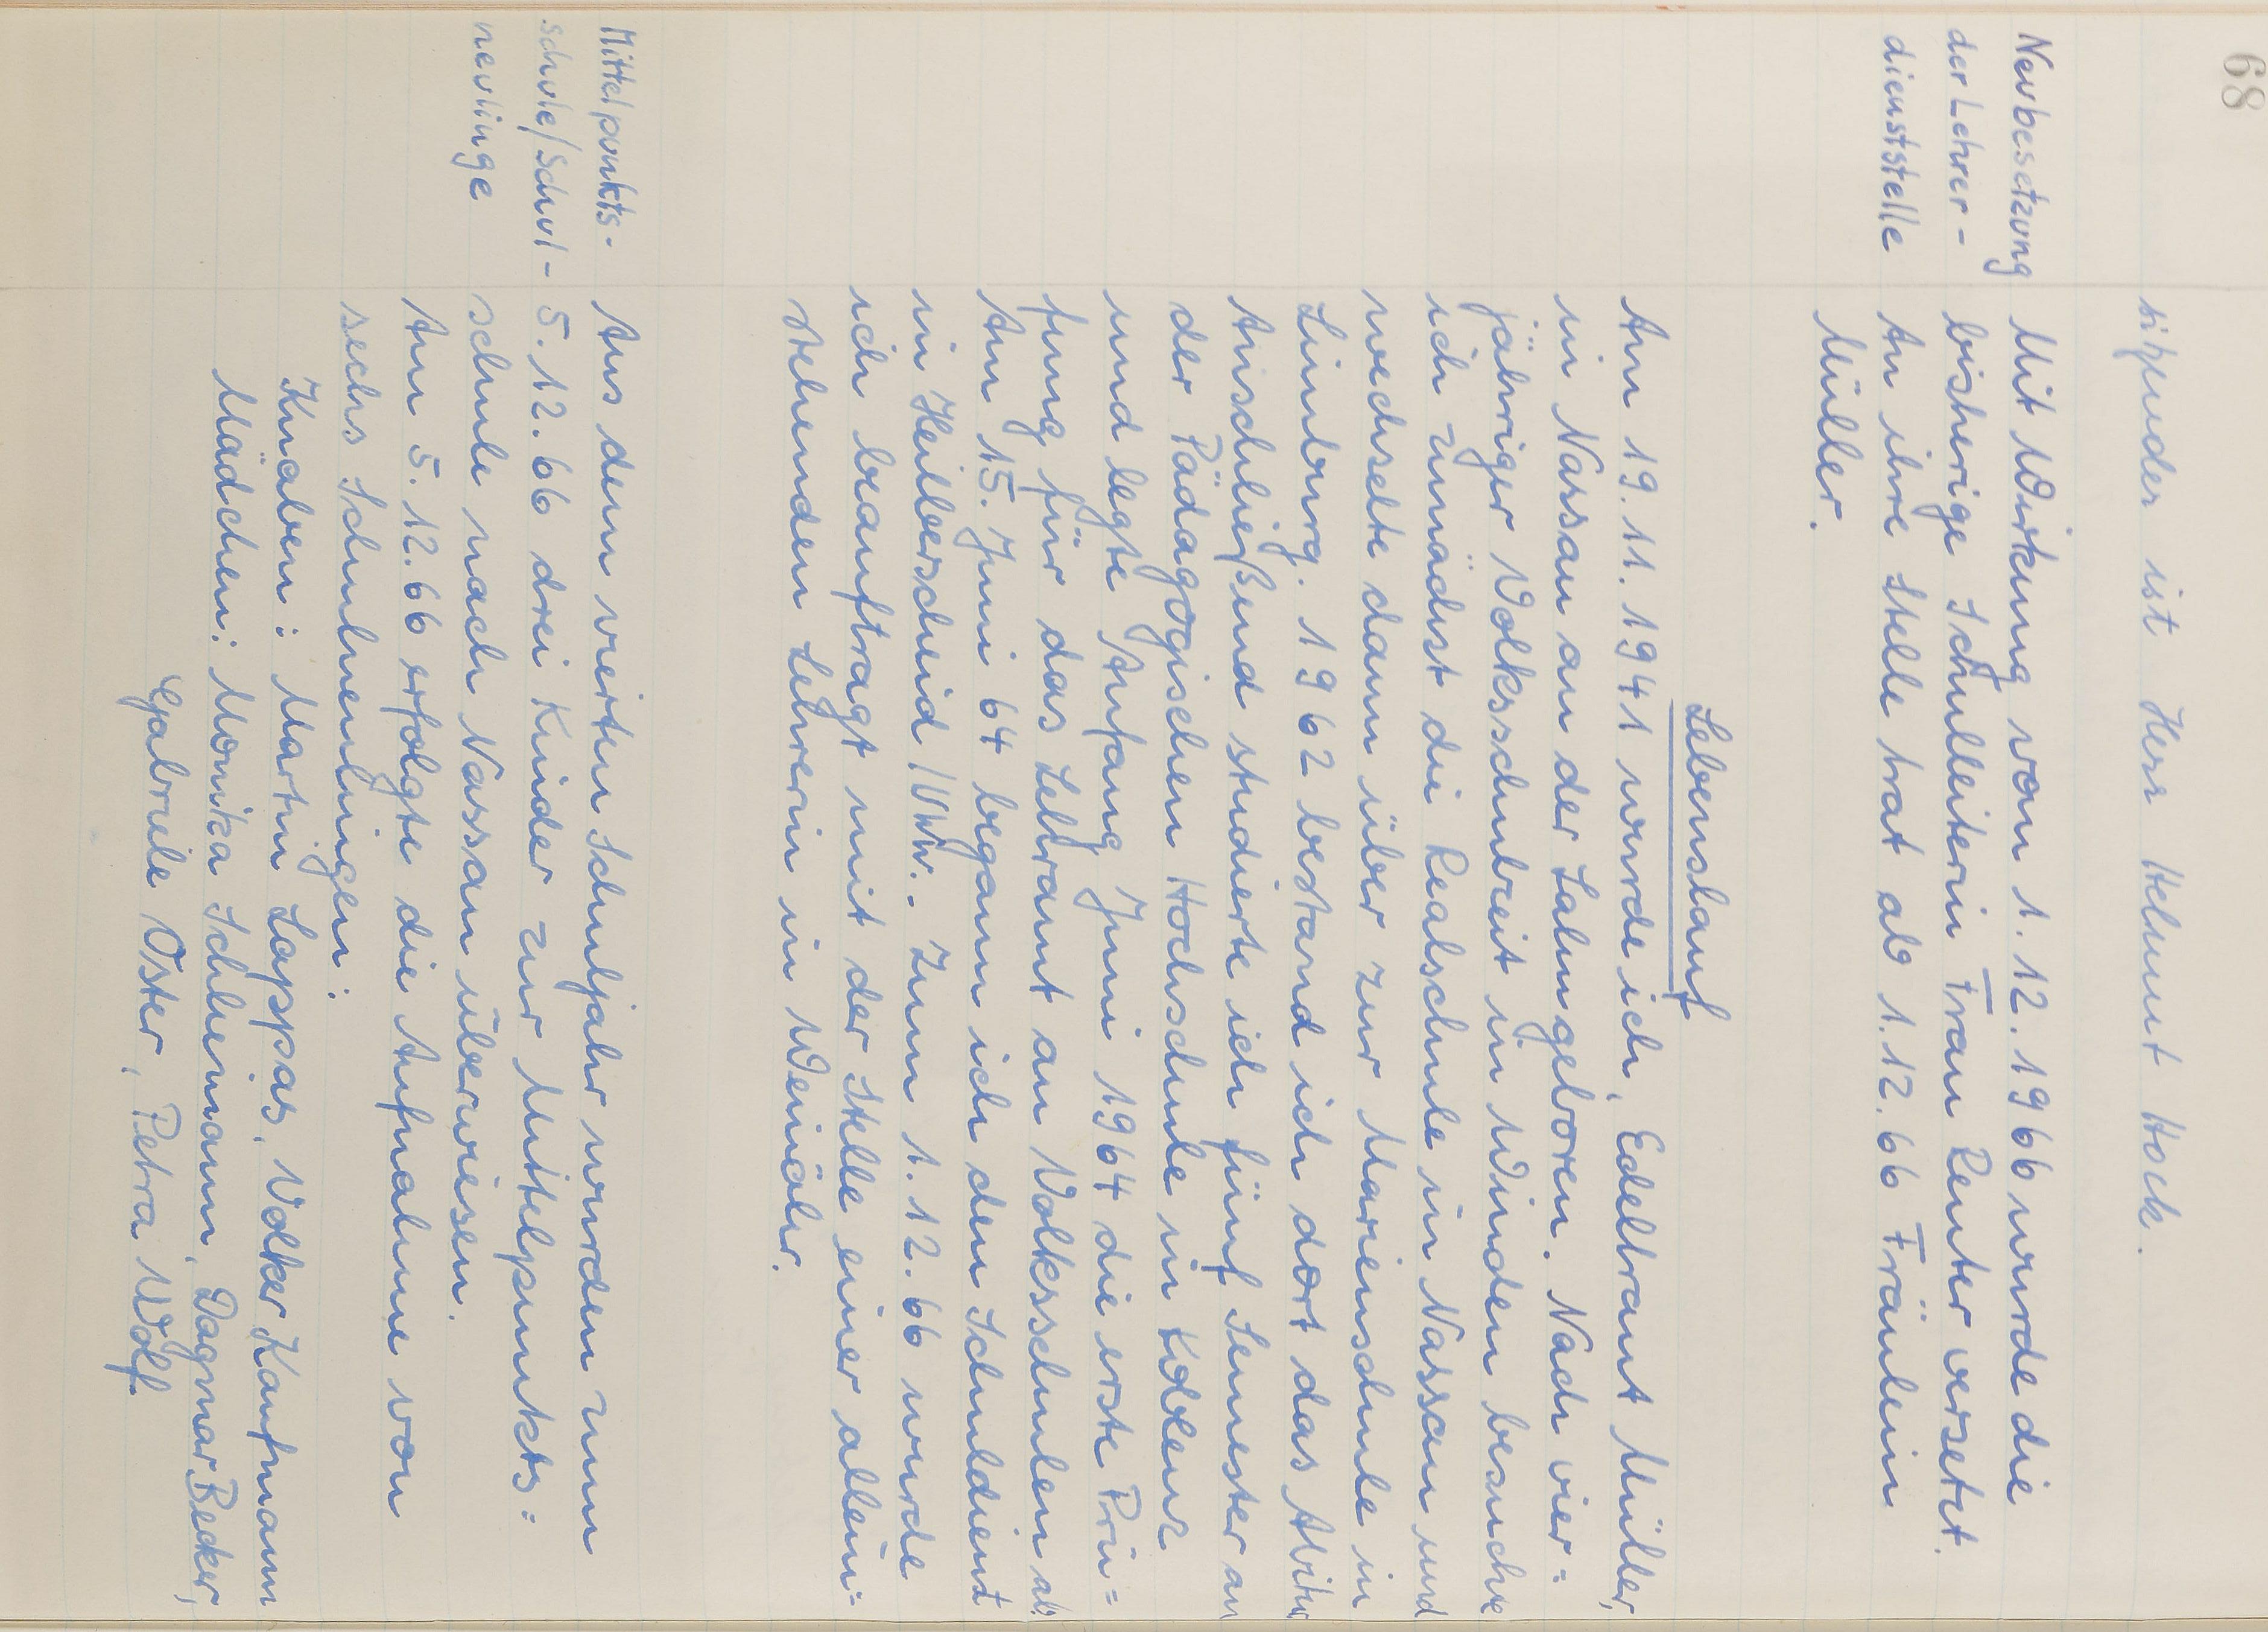 68
sitzender ist Herr Helmut Hock.
Neubesetzung
der Lehrer-
dienststelle
Mit Wirkung vom 1.12.1966 wurde die
bisherige Schulleiterin Frau Reuter versetzt.
An ihre Stelle trat ab 1.12.66 Fräulein
Müller.
Lebenslauf
Am 19.11.1941 wurde ich, Edeltraut Müller,
in Nassau an der Lahn geboren. Nach vier=
jähriger Volksschulzeit in Winden besuchte
ich zunächst die Realschule in Nassau und
wechselte dann über zur Marienschule in
Limburg. 1962 bestand ich dort das Abitur
Anschließend studierte ich fünf Semester an
der Pädagogischen Hochschule in Koblenz
und legte Anfang Juni 1964 die erste Prü=
fung für das Lehramt an Volksschulen ab.
Am 15. Juni 64 begann ich den Schuldienst
in Heilberscheid /UWw.. Zum 1.12.66 wurde
ich beauftragt mit der Stelle einer allein=
stehenden Lehrerin in Weinähr.
Mittelpunkts-
schule/Schul-
neulinge
Aus dem vierten Schuljahr wurden zum
5.12.66 drei Kinder zur Mittelpunkts=
schule nach Nassau überwiesen.
Am 5.12.66 erfolgte die Aufnahme von
sechs Schulneulingen:
Knaben: Martin Lappas, Volker Kaufmann
Mädchen: Monika Schliemann, Dagmar Becker,
Gabriele Oster, Petra Wolf.